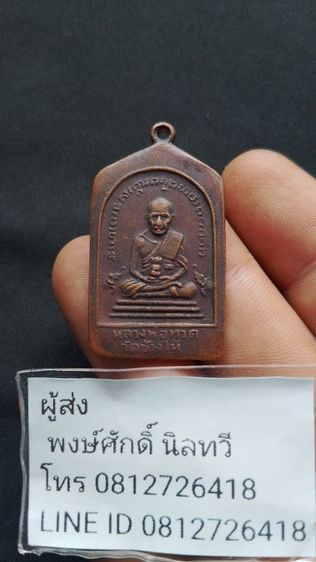 หลวงพ่อทวด
วัดช้างให้
ผู้ส่ง
พงษ์ศักดิ์ นิลทวี
โทร 0812726418
LINE ID 0812726418